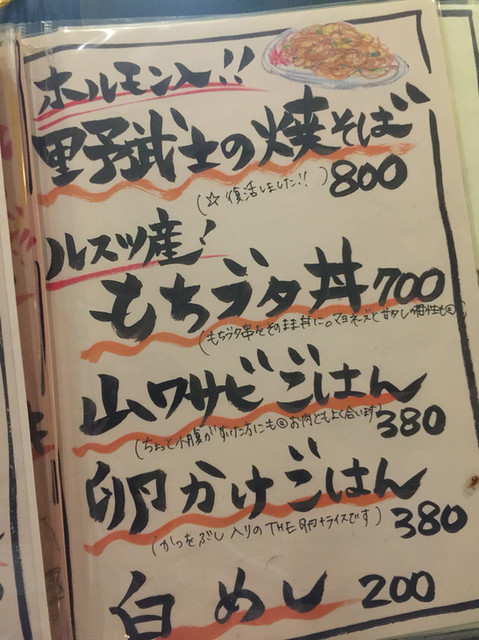 ホルモン入!!
野武士の焼そば
(☆復活しました!!) 800
ルスツ産!
もちブタ丼 700
(もちブタ串をそのまま丼に。マヨネーズと甘タレの相性も◎)
山ワサビごはん
(ちょっと小腹がすいた方にも◎お肉ともよく合います) 380
卵かけごはん
(かつをぶし入りのTHE卵ライスです) 380
白めし 200